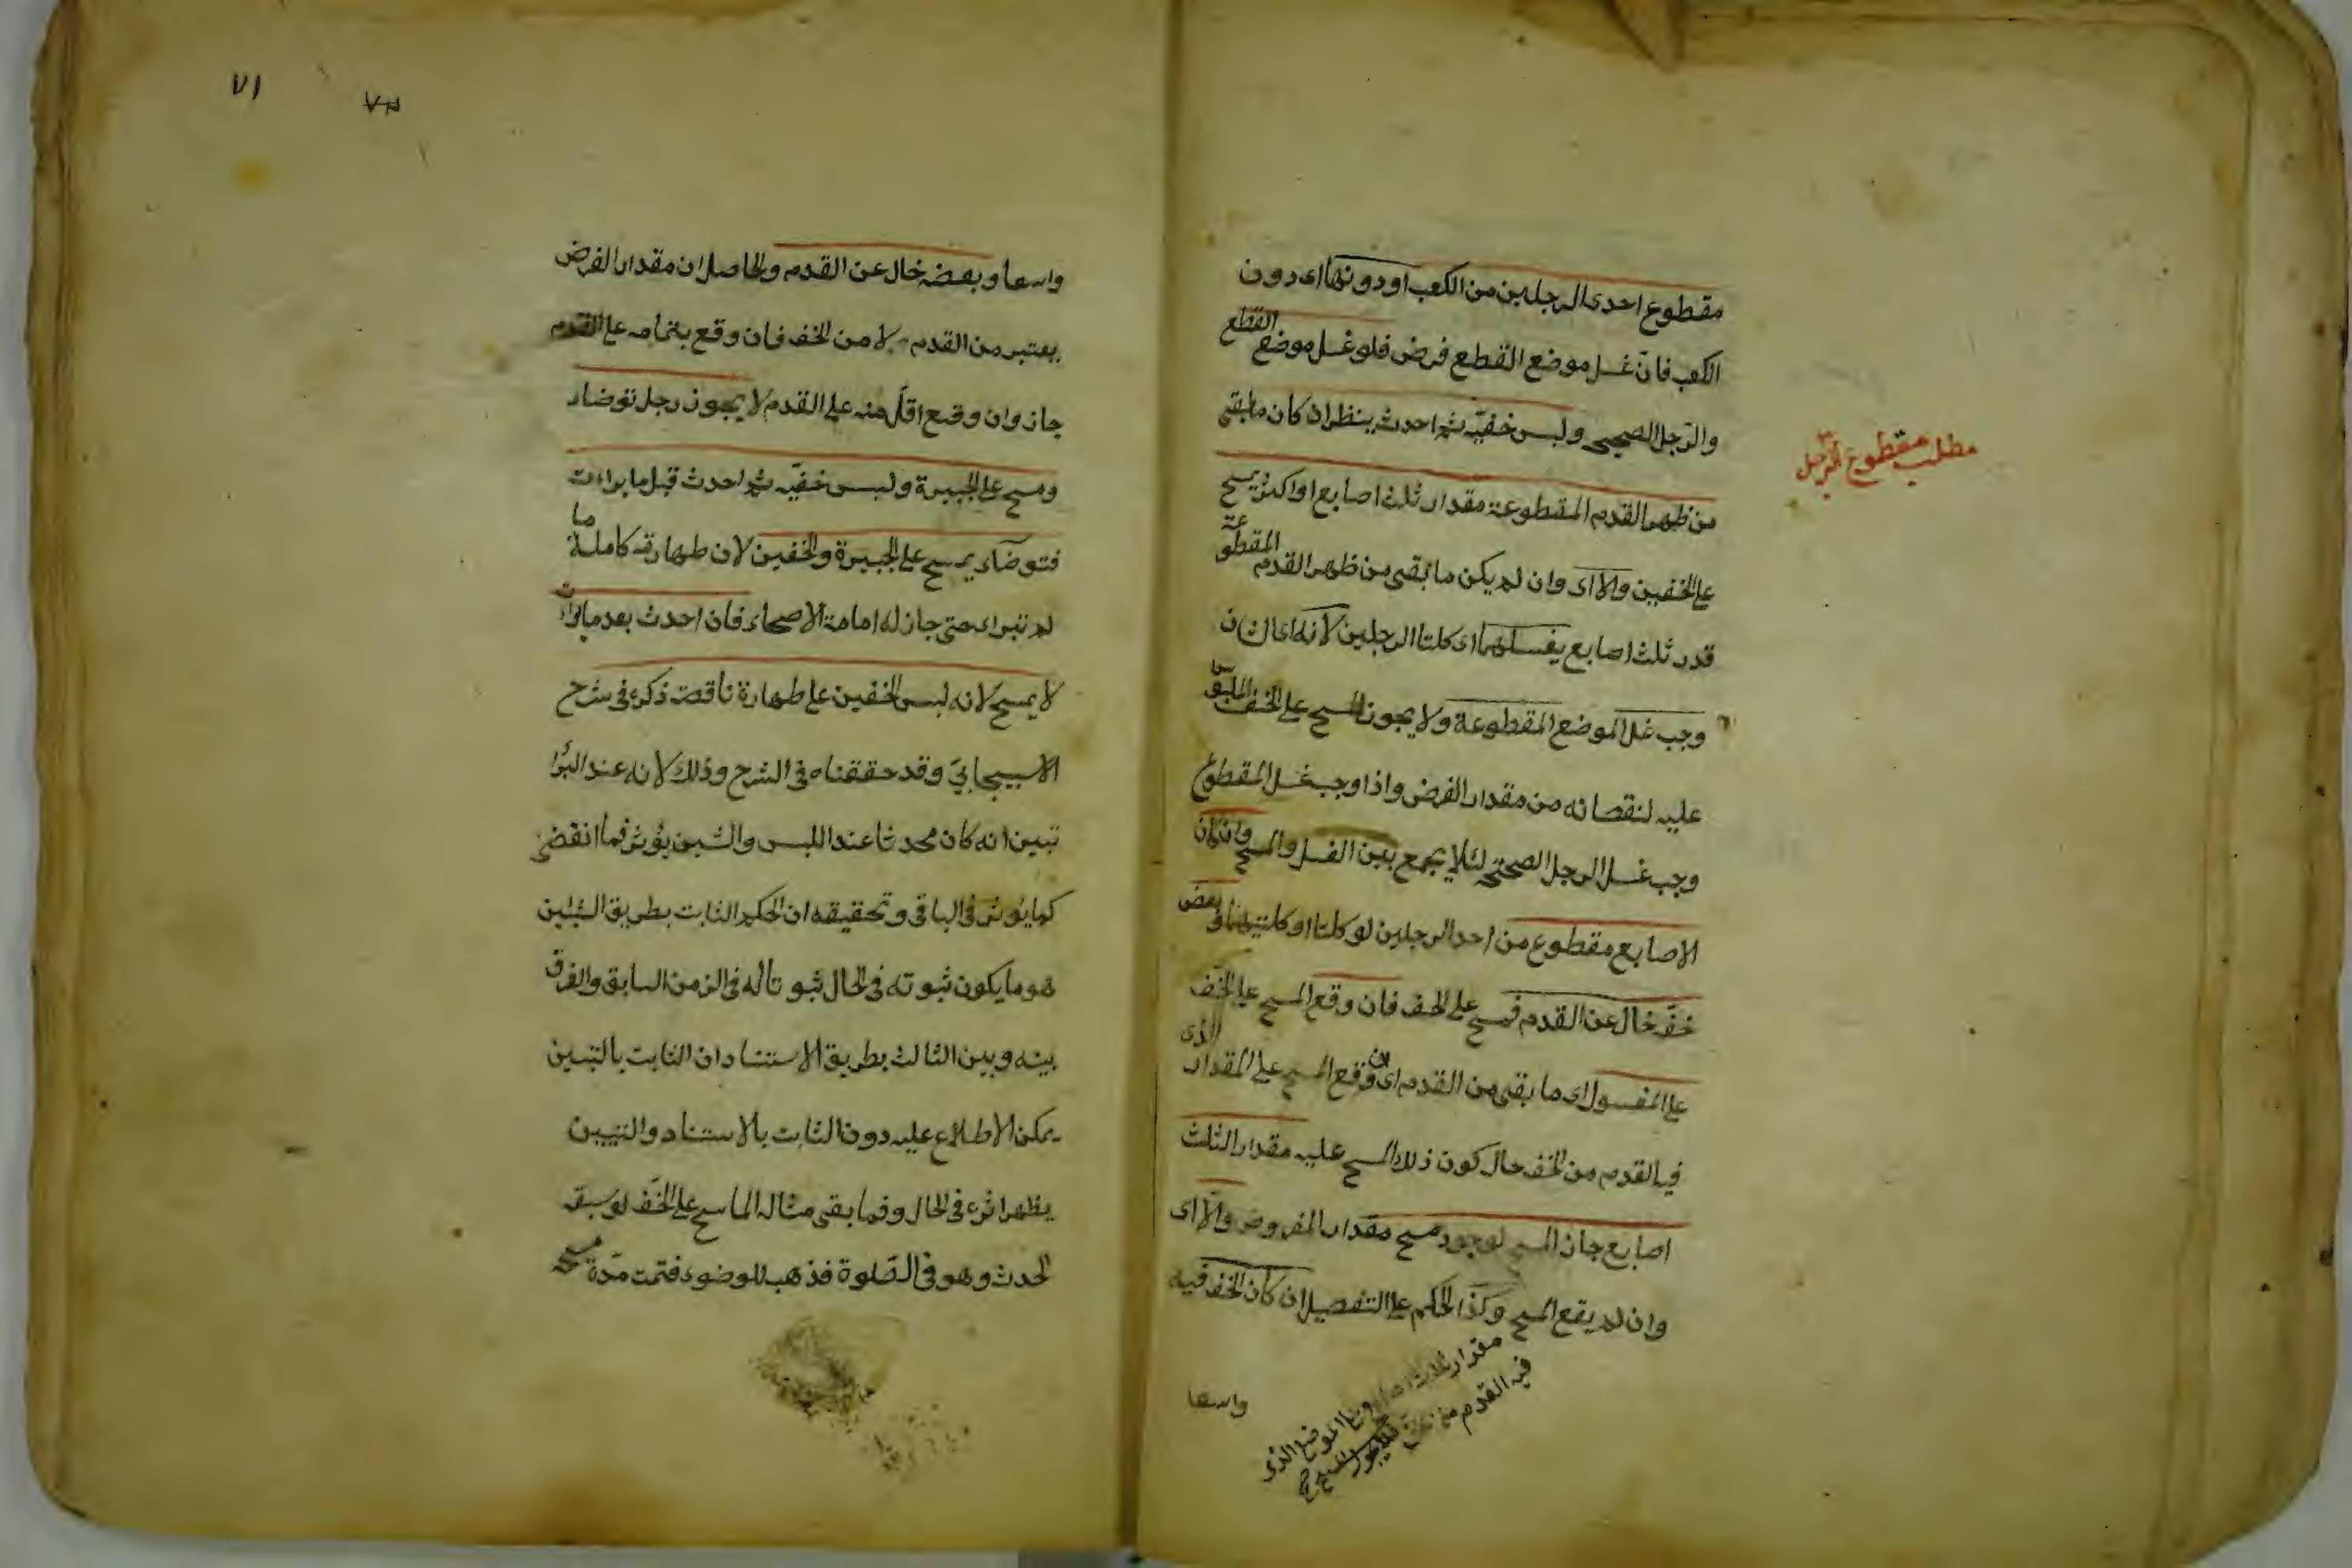 مقطوع احدى الرجلين من الكعب او دونها اى دون
الكعب فان غسل موضع القطع فرض فلو غسل موضع القطع
والرجل الصحيح ولبس خفيه ثم احدث ينظر ان كان ما بقى
من ظهر القدم المقطوعة مقدار ثلث اصابع او اكثر يمسح
على الخفين والا اى وان لم يكن ما بقى من ظهر القدم المقطوعة
قدر ثلث اصابع يغسلهما اى كلتا الرجلين لانه اى الشان
وجب غسل الموضع المقطوعة ولا يجوز المسح على الخف
عليه لنقصانه من مقدار الفرض واذا وجب غسل المقطوع
وجب غسل الرجل الصحيحة لئلا يجمع بين الغسل والمسح وان كان
الاصابع مقطوع من احد الرجلين لو كلتا او كلتيهما وبعض
خف خال عن القدم فمسح على الخف فان وقع المسح على الخف
على المغسول اى ما بقى من القدم اى ان وقع المسح على المقدار الذى
فيه القدم من الخف حال كون ذلك المسح عليه مقدار الثلث
اصابع جاز المسح لوجود مسح مقدار المفروض والا اى
وان لم يقع المسح وكذا الحكم على التفصيل ان كان الخف فيه
مقدار ثلاث اصابع على الموضع الذى
فيه القدم من فلا يجوز المسح
واسعا
مطلب مقطوع الرجل
٧١
٧٣
واسعا وبعضه خال عن القدم والحاصل ان مقدار الفرض
يعتبر من القدم لا من الخف فان وقع بتمامه على القدم
جاز وان وقع اقل منه على القدم لا يجوز رجل توضاء
ومسح على الجبيرة ولبس خفيه ثم احدث قبل ما براءت
فتوضاء يمسح على الجبيرة والخفين لان طهارته كاملة ما
لم تبراء حتى جاز له امامة الاصحاء فان احدث بعد ما براءت
لا يمسح لانه لبس الخفين على طهارة ناقصة ذكره فى شرح
الاسبيجابى وقد حققناه فى الشرح وذلك لانه عند البرأ
تبين انه كان محدثا عند اللبس والتبين يؤثر فما انقضى
كما يؤثر فى الباقى وتحقيقه ان الحكم الثابت بطريق التبين
هو ما يكون ثبوته فى الحال ثبوتا له فى الزمن السابق والفرق
بينه وبين الثالث بطريق الاستناد ان الثابت بالتبين
يمكن الاطلاع عليه دون الثابت بالاستناد والتبيين
يظهر اثره فى الحال وفما بقى مثاله الماسح على الخف لو سبقه
الحدث وهو فى الصلوة فذهب للوضوء فتمت مدة مسحه